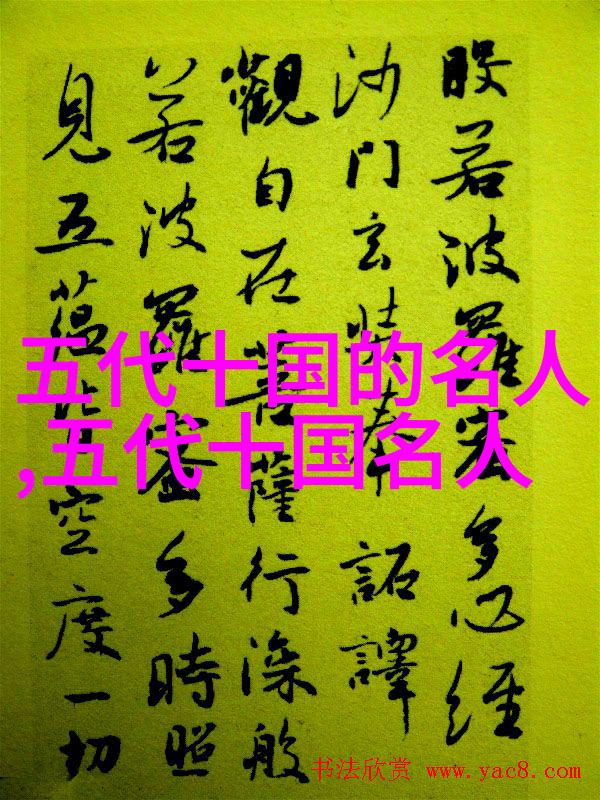 般若波羅蜜多心經
沙門玄奘奉 詔譯
觀自在菩薩行深般
若波羅蜜多時照
見五蘊皆空度一切
五代十国的名人
,五代十国名人
书法欣赏 www.yac8.com